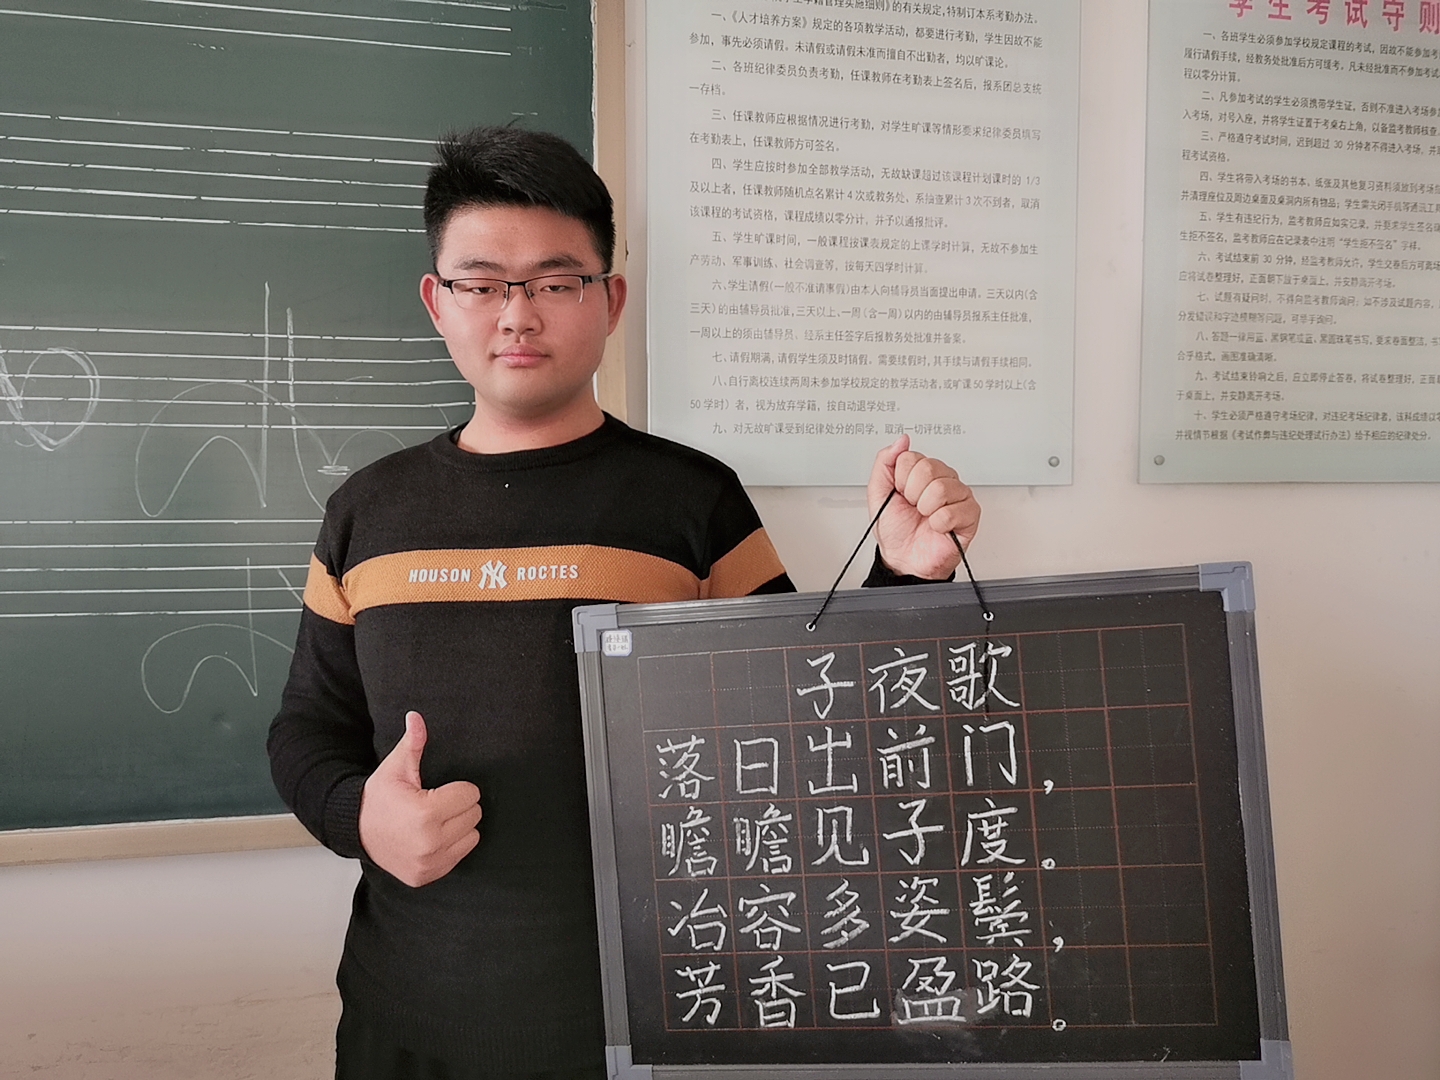 学籍管理实施细则》的有关规定,特制订本系考勤办法。
一、《人才培养方案》规定的各项教学活动，都要进行考勤，学生因故不能
参加，事先必须请假。未请假或请假未准而擅自不出勤者，均以旷课论。
二、各班纪律委员负责考勤，任课教师在考勤表上签名后，报系团总支统
一存档。
三、任课教师应根据情况进行考勤，对学生旷课等情形要求纪律委员填写
在考勤表上，任课教师方可签名。
四、学生应按时参加全部教学活动，无故缺课超过该课程计划课时的 1/3
及以上者，任课教师随机点名累计4次或教务处、系抽查累计3次不到者，取消
该课程的考试资格，课程成绩以零分计，并予以通报批评。
五、学生旷课时间，一般课程按课表规定的上课学时计算，无故不参加生
产劳动、军事训练、社会调查等，按每天四学时计算。
六、学生请假(一般不准请事假)由本人向辅导员当面提出申请。三天以内(含
三天)的由辅导员批准,三天以上、一周(含一周)以内的由辅导员报系主任批准,
一周以上的须由辅导员、经系主任签字后报教务处批准并备案。
七、请假期满,请假学生须及时销假。需要续假时,其手续与请假手续相同。
八、自行离校连续两周未参加学校规定的教学活动者,或旷课50学时以上(含
50学时）者，视为放弃学籍，按自动退学处理。
九、对无故旷课受到纪律处分的同学，取消一切评优资格。
学生考试守则
一、各班学生必须参加学校规定课程的考试，因故不能参加考
履行请假手续，经教务处批准后方可缓考。凡未经批准而不参加考试
程以零分计算。
二、凡参加考试的学生必须携带学生证，否则不准进入考场参加
入考场，对号入座，并将学生证置于考桌右上角，以备监考教师核查。
三、严格遵守考试时间，迟到超过 30 分钟者不得进入考场，并
程考试资格。
四、学生将带入考场的书本、纸张及其他复习资料须放到考场
并清理座位及周边桌面及桌洞内所有物品；学生需关闭手机等通讯工具
五、学生有违纪行为，监考教师应如实记录，并要求学生签名
生拒不签名，监考教师应在记录表中注明“学生拒不签名”字样。
六、考试结束前 30 分钟，经监考教师允许，学生交卷后方可离场
应将试卷整理好，正面朝下放于桌面上，并安静离开考场。
七、试题有疑问时，不得向监考教师询问；如不涉及试题内容，
分发错误和字迹模糊等问题，可举手询问。
八、答题一律用蓝、黑钢笔或蓝、黑圆珠笔书写，要求卷面整洁，书
合乎格式，画图准确清晰。
九、考试结束铃响之后，应立即停止答卷，将试卷整理好，正面
于桌面上，并安静离开考场。
十、学生必须严格遵守考场纪律，对违纪考场纪律者，该科成绩以零
并视情节根据《考试作弊与违纪处理试行办法》给予相应的纪律处分。
HOUSON NY ROCTES
子夜歌
落日出前门，
瞻瞻见子度。
冶容多姿鬓，
芳香已盈路。